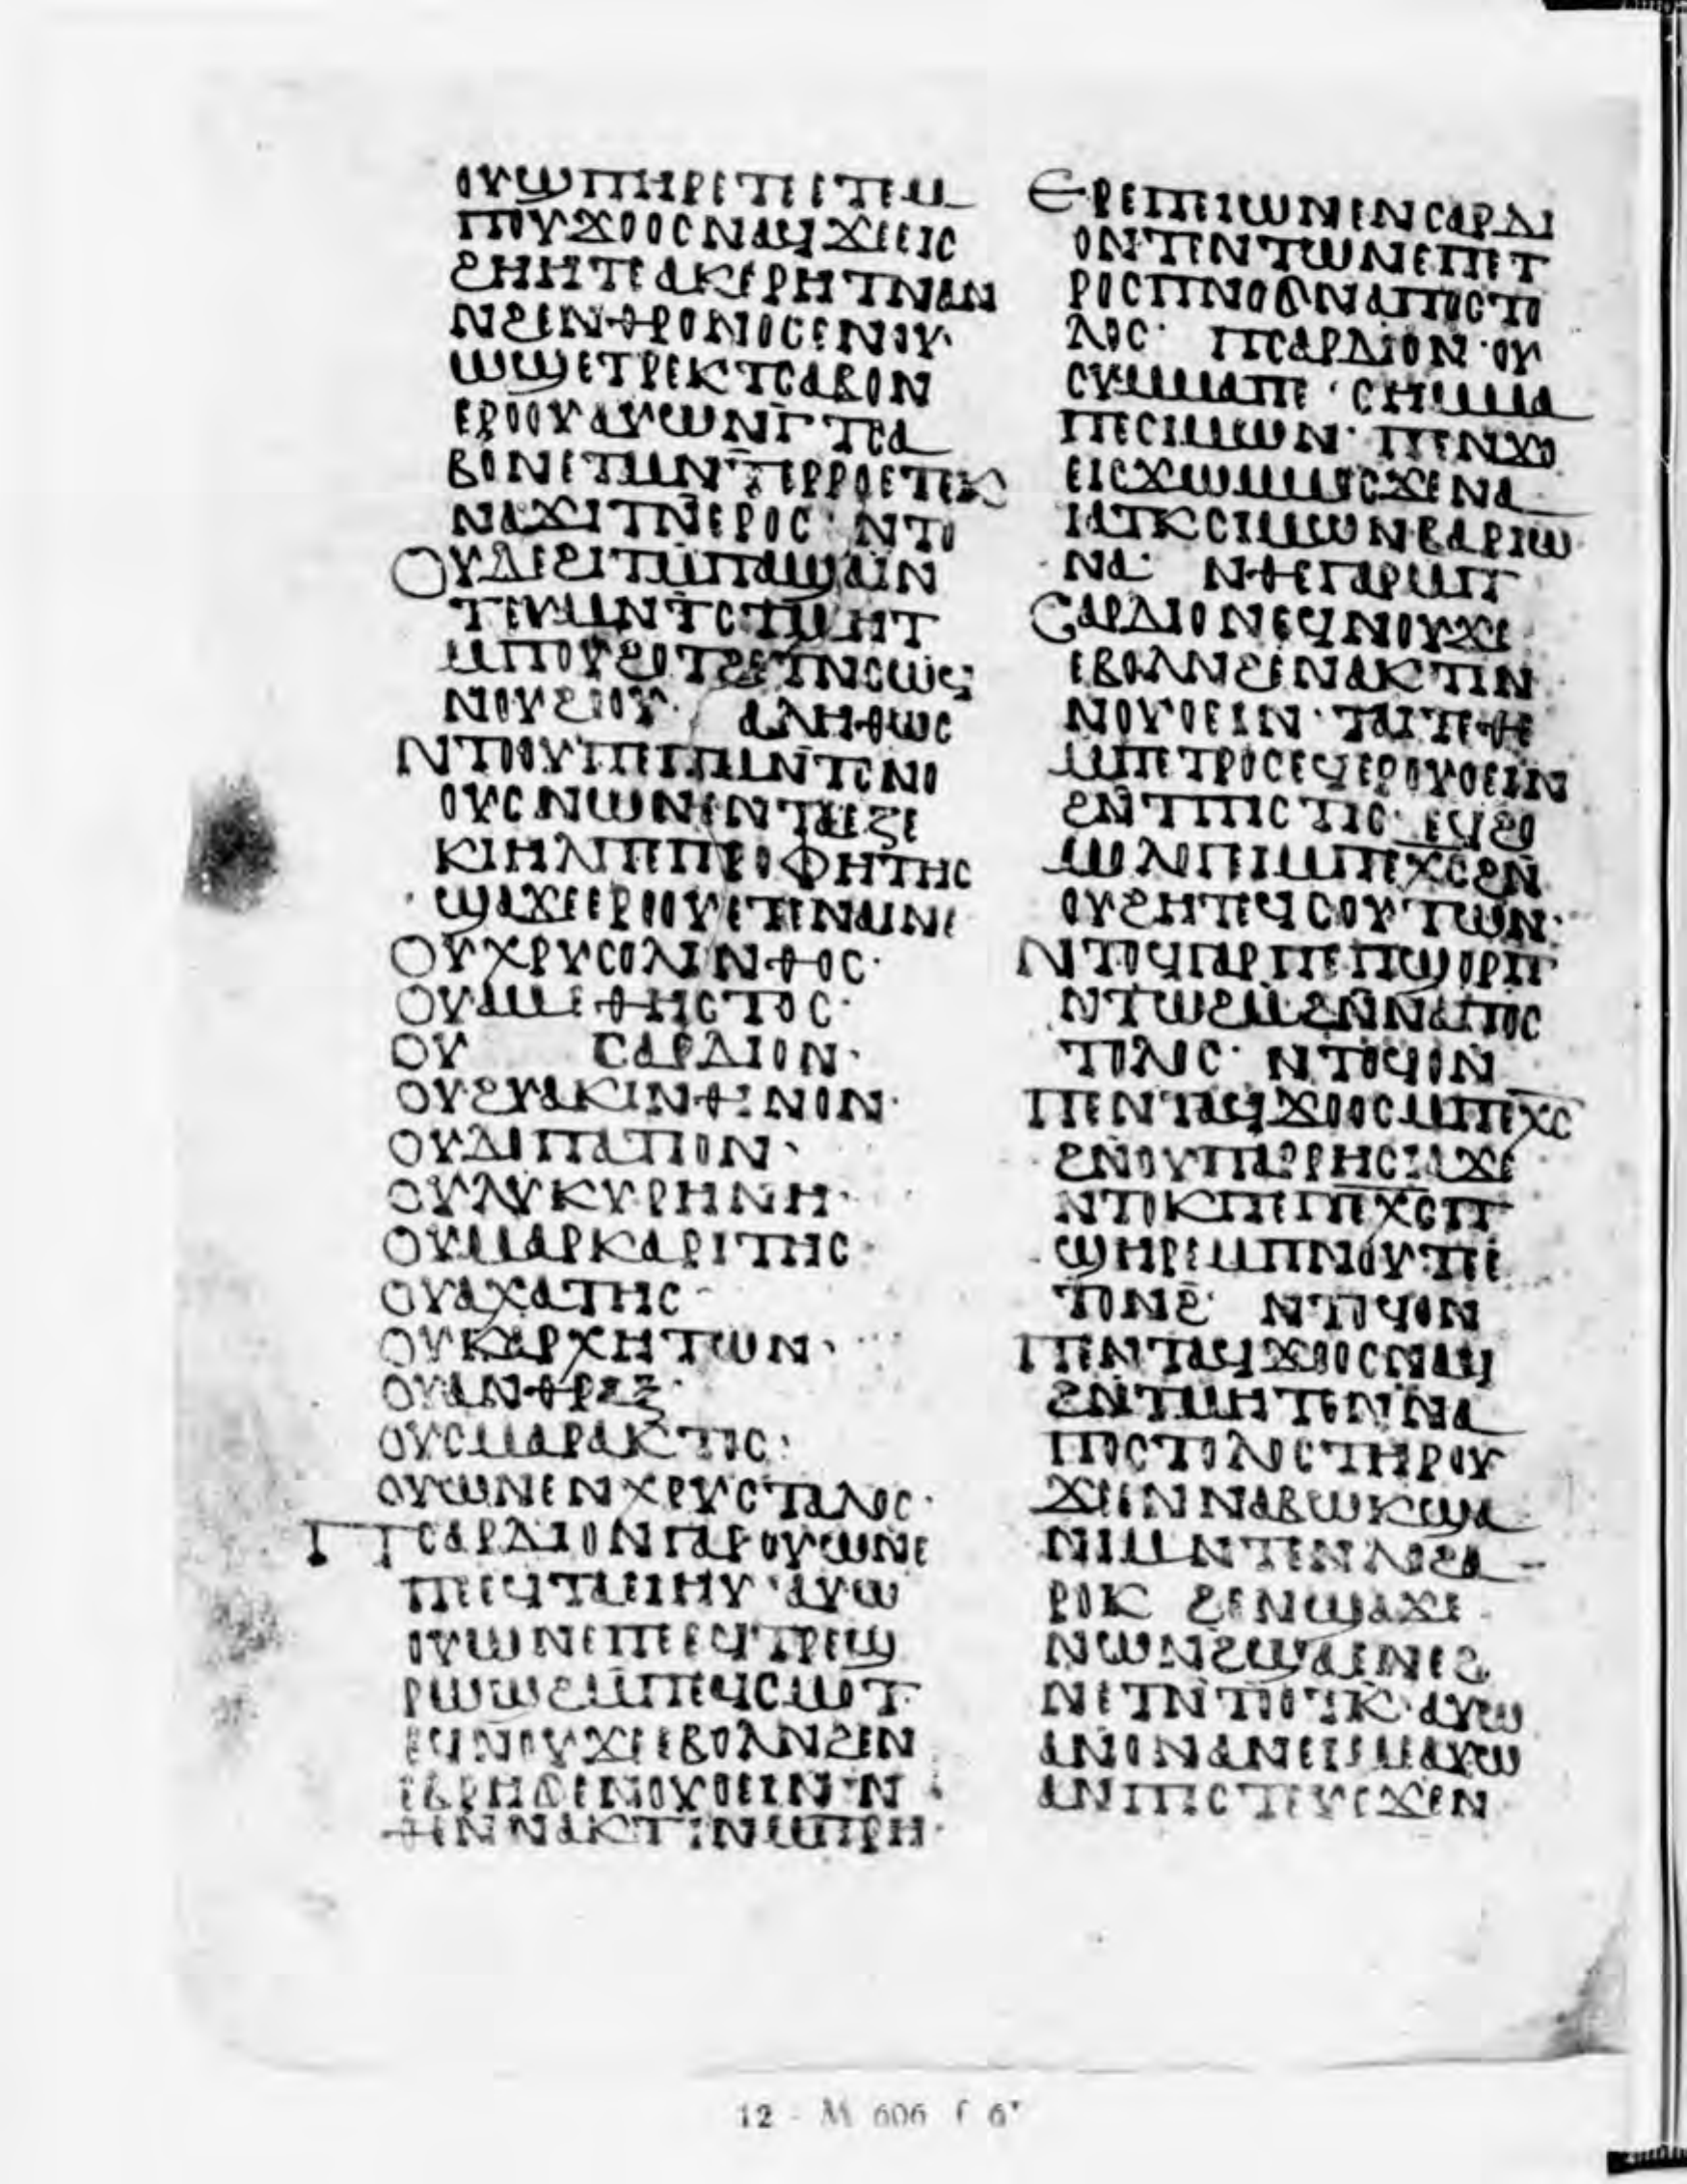 ⲟⲩϣⲡⲏⲣⲉⲧⲉⲉⲧⲉⲙ
ⲡⲟⲩϫⲟⲟⲥⲛⲁϥϫⲉⲉⲓⲥ
ϩⲏⲏⲧⲉⲁⲕⲉⲣⲏⲧⲛⲁⲛ
ⲛϩⲉⲛⲑⲣⲟⲛⲟⲥⲉⲛⲟⲩ
ⲱϣⲉⲧⲣⲉⲕⲧⲥⲁⲃⲟⲛ
ⲉⲣⲟⲟⲩⲁⲩⲱⲛⲅⲧⲥⲁ
ⲃⲟⲛⲉⲧⲙⲛⲧⲉⲣⲣⲟⲉⲧⲉⲕ
ⲛⲁϫⲓⲧⲛⲉⲣⲟⲥ· ⲛⲧⲟ
ⲟⲩⲇⲉϩⲓⲧⲙⲡⲁϣⲁⲓⲛ
ⲧⲉⲩⲙⲛⲧⲥⲧⲙⲏⲧ
ⲙⲡⲟⲩϩⲟⲧϩⲉⲧⲛⲥⲱϥ
ⲛⲟⲩϩⲟⲟⲩ· ⲁⲗⲏⲑⲱⲥ
ⲛⲧⲟⲟⲩⲡⲉⲡⲙⲛⲧⲥⲛⲟ
ⲟⲩⲥⲛⲱⲛⲉⲛⲧⲁⲉⲍⲉ
ⲕⲓⲏⲗⲡⲉⲡⲣⲟⲫⲏⲧⲏⲥ
ϣⲁϫⲉⲉⲣⲟⲟⲩⲉⲧⲉⲛⲁⲓⲛⲉ
ⲟⲩⲭⲣⲩⲥⲟⲗⲓⲛⲑⲟⲥ·
ⲟⲩⲁⲙⲉⲑⲏⲥⲧⲟⲥ·
ⲟⲩ ⲥⲁⲣⲇⲓⲟⲛ·
ⲟⲩϩⲩⲁⲕⲓⲛⲑⲓⲛⲟⲛ·
ⲟⲩⲇⲓⲡⲁⲧⲓⲟⲛ·
ⲟⲩⲗⲩⲕⲩⲣⲏⲛⲏ·
ⲟⲩⲙⲁⲣⲕⲁⲣⲓⲧⲏⲥ·
ⲟⲩⲁⲭⲁⲧⲏⲥ·
ⲟⲩⲕⲁⲣⲭⲏⲧⲱⲛ·
ⲟⲩⲁⲛⲑⲣⲁⲝ·
ⲟⲩⲥⲙⲁⲣⲁⲕⲧⲟⲥ:
ⲟⲩⲱⲛⲉⲛⲭⲣⲩⲥⲧⲁⲗⲟⲥ·
ⲡⲥⲁⲣⲇⲓⲟⲛⲅⲁⲣⲟⲩⲱⲛⲉ
ⲡⲉⲉϥⲧⲁⲉⲓⲏⲩ·ⲁⲩⲱ
ⲟⲩⲱⲛⲉⲡⲉⲉϥⲧⲣⲉϣ
ⲣⲱϣϩⲙⲡⲉϥⲥⲙⲟⲧ
ⲉϥⲛⲟⲩϫⲉⲉⲃⲟⲗⲛϩⲉⲛ
ⲉⲃⲣⲏϭⲉⲛⲟⲩⲟⲉⲓⲛ·ⲛ
ⲑⲉⲛⲛⲁⲕⲧⲓⲛⲙⲡⲣⲏ·
ⲉⲣⲉⲡⲉⲓⲱⲛⲉⲛⲥⲁⲣⲇⲓ
ⲟⲛⲧⲉⲛⲧⲱⲛⲉⲡⲉⲧ
ⲣⲟⲥⲡⲛⲟϭⲛⲁⲡⲟⲥⲧⲟ
ⲗⲟⲥ· ⲡⲥⲁⲣⲇⲓⲟⲛ·ⲟⲩ
ⲥⲩⲙⲙⲁⲡⲉ·ⲥⲏⲙⲙⲁ
ⲡⲉⲥⲓⲙⲱⲛ· ⲡⲉⲛϫⲟ
ⲉⲓⲥϫⲱⲙⲙⲟⲥϫⲉⲛⲁ
ⲓⲁⲧⲕⲥⲓⲙⲱⲛⲃⲁⲣⲓⲱ
ⲛⲁ· ⲛⲑⲉⲅⲁⲣⲙⲡ
ⲥⲁⲣⲇⲓⲟⲛⲉϥⲛⲟⲩϫⲉ
ⲉⲃⲟⲗⲛϩⲉⲛⲁⲕⲧⲓⲛ
ⲛⲟⲩⲟⲉⲓⲛ·ⲧⲁⲓⲧⲉⲑⲉ
ⲙⲡⲉⲧⲣⲟⲥⲉϥⲉⲣⲟⲩⲟⲉⲓⲛ
ϩⲛⲧⲡⲓⲥⲧⲓⲥ· ⲉϥϩⲟ
ⲙⲟⲗⲟⲅⲓⲙⲡⲉⲭⲥϩⲛ
ⲟⲩϩⲏⲧⲉϥⲥⲟⲩⲧⲱⲛ·
ⲛⲧⲟϥⲅⲁⲣⲡⲉⲡϣⲟⲣⲡ
ⲛⲧⲱϩⲙϩⲛⲛⲁⲡⲟⲥ
ⲧⲟⲗⲟⲥ· ⲛⲧⲟϥⲟⲛ
ⲡⲉⲛⲧⲁϥϫⲟⲟⲥⲙⲡⲉⲭⲥ
ϩⲛⲟⲩⲡⲁⲣⲣⲏⲥⲓⲁϫⲉ
ⲛⲧⲟⲕⲡⲉⲡⲉⲭⲥⲡ
ϣⲏⲣⲉⲙⲡⲛⲟⲩⲧⲉ
ⲧⲟⲛϩ· ⲛⲧⲟϥⲟⲛ
ⲡⲉⲛⲧⲁϥϫⲟⲟⲥⲛⲁϥ
ϩⲛⲧⲙⲏⲧⲉⲛⲛⲁ
ⲡⲟⲥⲧⲟⲗⲟⲥⲧⲏⲣⲟⲩ
ϫⲉⲉⲛⲛⲁⲃⲱⲕϣⲁ
ⲛⲓⲙⲛⲧⲉⲛⲗⲟϩⲁ
ⲣⲟⲕ ϩⲉⲛϣⲁϫⲉ
ⲛⲱⲛϩϣⲁⲉⲛⲉϩ
ⲛⲉⲧⲛⲧⲟⲟⲧⲕ·ⲁⲩⲱ
ⲁⲛⲟⲛⲁⲛⲉⲓⲙⲉⲁⲩⲱ
ⲁⲛⲡⲓⲥⲧⲉⲩⲉϫⲉⲛ
12 - M 606 f 6ᵛ